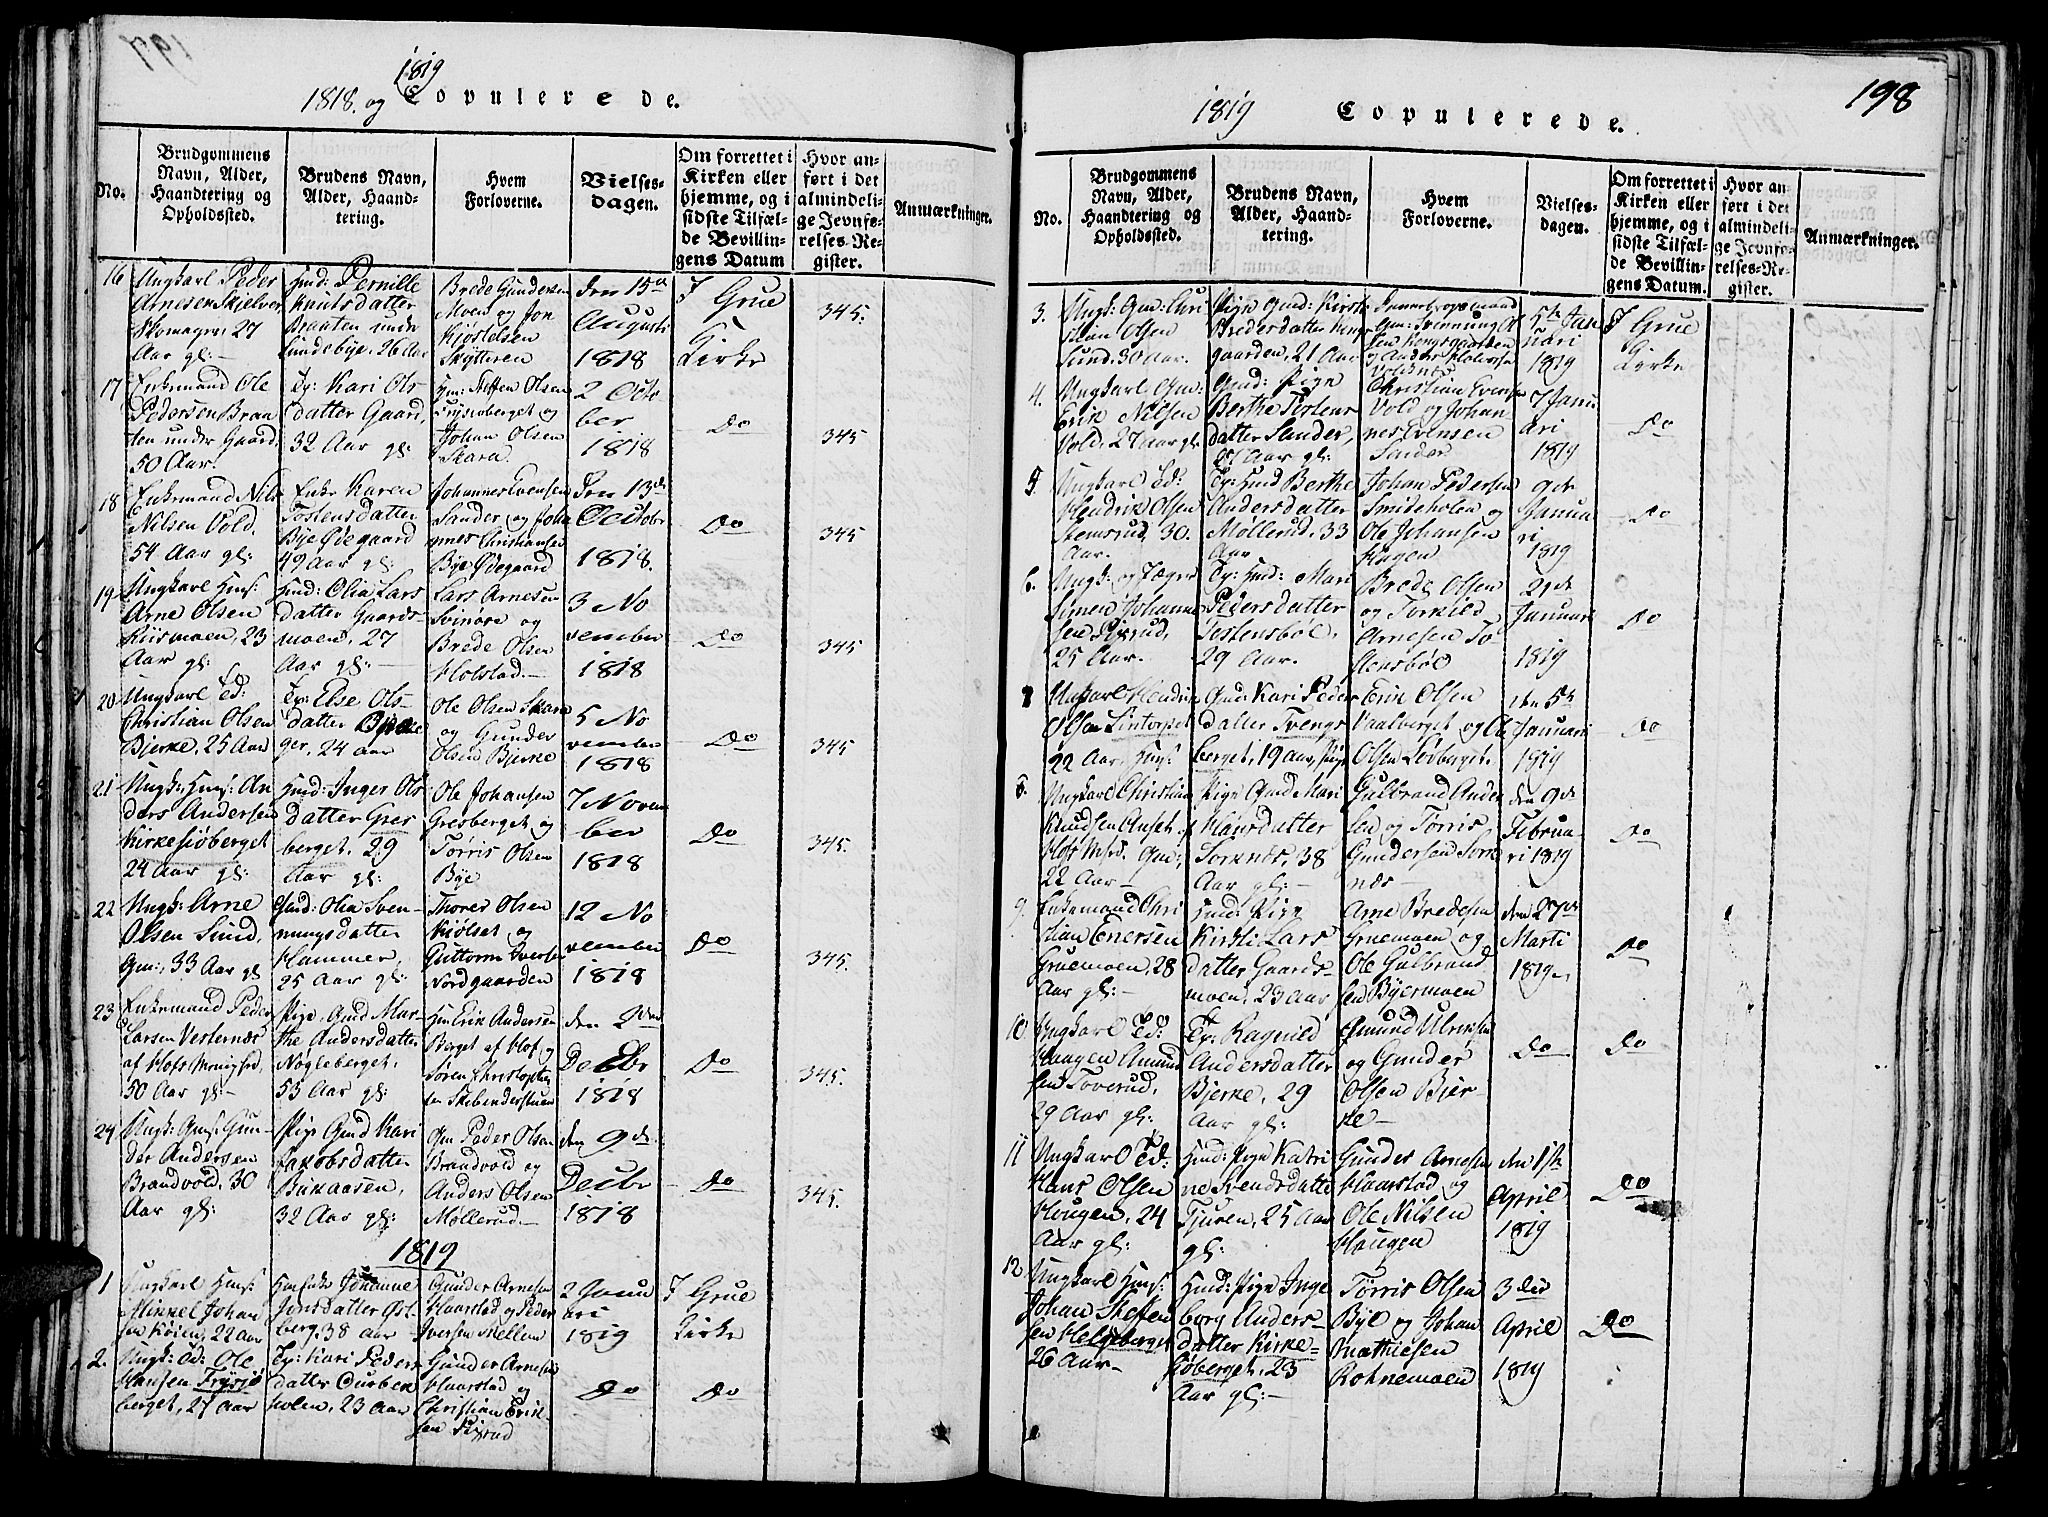 197
1819
1818. og Copulerede.
No.
Brudgommens Navn, Alder, Haandtering og Opholdssted.
Brudens Navn, Alder, Haandtering.
Hvem Forloverne.
Vielses-dagen.
Om forrettet i Kirken eller hjemme, og i sidste Tilfælde Bevillingens Datum
Hvor anført i det almindelige Jevnførelses-Register.
Anmærkninger.
16 Ungkarl Peder Arnesen Skomager, 27 Aar gl:
Pernille Knudsdatter Braaten under Sundebye, 26 Aar
Brede Gundersen Moen og Jon Kjøstelsen Skytteren
den 15de Augusti 1818
I Grue Kirke
345.
17 Enkemand Ole Pedersen Braaten under Gaard, 50 Aar.
Ty: Kari Olsdatter Gaard, 32 Aar gl:
Gm: Steffen Olsen Frysjøberget og Johan Olsen Skara.
2 October 1818
Do
345
18 Enkemand Nils Nilsen Vold, 54 Aar gl:
Enke Karen Tostensdatter Bye Ødegaard 49 Aar gl:
Johannes Evensen Sander og Johannes Christiansen Bye Ødegaard
Den 13de October 1818.
Do
345
19 Ungkarl Huus: Arne Olsen Riismoen, 23 Aar gl:
Huusd: Olia Larsdatter Gaardsmoen, 27 Aar gl:
Lars Arnesen Svinøre og Brede Olsen Holstad.
3 November 1818
Do
345
20 Ungkarl Td: Christian Olsen Bjerke, 25 Aar
Ty: Else Olsdatter 24 Aar
Ole Olsen Skara og Gunder Olsen Bjerke
5 November 1818
Do
345
21 Ungk: Huus: Anders Andersen Kirkesjøberget 24 Aar gl:
Huusd: Inger Olsdatter Gresberget, 29 Aar gl:
Ole Johansen Gresberget og Tørris Olsen Bye
7 November 1818
Do
345.
22 Ungk: Arne Olsen Sund, Gm:, 33 Aar gl
Gmd: Olia Svenningsdatter Hammer, 25 Aar gl:
Thorer Olsen Kiølset og Guttorm Iversen Nordgaarden
12 November 1818
Do
345.
23 Enkemand Peder Larsen Vesternæs af Hofs Menighed, 50 Aar gl:
Pige, Gmd Marthe Andersdatter Nøgleberget, 53 Aar gl:
Gm Erik Andersen Berget af Hof og Søren Christophersen Skibenderstuen
den 2den Decbr 1818
Do
345.
24 Ungk: Gms: Gunder Andersen Brandvold, 30 Aar gl:
Pige Gmd Kari Jakobsdatter Bukaasen, 32 Aar gl:
Gm Peder Olsen Brandvold og Anders Olsen Møllerud.
den 9de Decbr 1818
Do
345.
1819
1 Ungkarl Huus: Mikkel Johansen Køien, 22 Aar
Enke Johanne Jonsdatter Østberg, 38 Aar
Gunder Arnesen Haarstad og Peder Iversen Mellem
2 Januari 1819
I Grue Kirke
2. Ungk: Td: Ole Hansen Frysjøberget, 27 Aar
Ty: Kari Pedersdatter Durbekholen, 23 Aar
Gunder Arnesen Haarstad og Christian Eriksen Pijrud
Do
Do
1819 Copulerede.
198
No.
Brudgommens Navn, Alder, Haandtering og Opholdssted.
Brudens Navn, Alder, Haandtering.
Hvem Forloverne.
Vielses-dagen.
Om forrettet i Kirken eller hjemme, og i sidste Tilfælde Bevillingens Datum.
Hvor anført i det almindelige Jevnførelses-Register.
Anmærkninger.
3. Ungk: Gm: Christian Olsen Sund, 30 Aar.
Pige Gmd: Kirsti Bredesdatter Kongsgaarden, 21 Aar
Gm: Svenning Olsen Kongsgaarden og Anders Halvorsen Voldnes
5te Januari 1819
I Grue Kirke
4. Ungkarl Gm: Erik Nilsen Vold, 27 Aar gl.
Gmd: Pige Berthe Tostensdatter Sander, Aar gl:
Christian Evensen Vold og Johannes Evensen Sander
7 Januari 1819
Do
5. Ungkarl Td: Hendrik Olsen Stemsrud, 30. Aar.
Ty: Huusd Berthe Andersdatter Møllerud, 33 Aar
Johan Pedersen Smideholen og Ole Johansen Hagen
9de Januari 1819
Do
6. Ungk: og Jæger Simen Johannesen Pijrud, 25 Aar.
Ty: Huusd: Mari Pedersdatter Tostensbøl, 29 Aar.
Brede Olsen og Torkild Arnesen Tostensbøl
29de Januari 1819
Do
7 Ungkarl Hendrik Olsen Lintorpet 22 Aar, Huus:
Gmd: Kari Pedersdatter Tvengsberget, 19 Aar, Pige
Erik Olsen Vaalberget og Ole Olsen Løvberget.
den 5te Januari 1819
Do
8. Ungkarl Christian Knudsen Anset, af Hofs Mhd. Gm:, 22 Aar
Pige Gmd Mari Hansdatter Sorknæs, 38 Aar gl:
Gulbrand Andersen og Tørris Gundersen Sorknæs
den 9de Februari 1819
Do
9. Enkemand Christian Enersen Gruemoen, 28 Aar gl:
Huusd: Pige Kirsti Larsdatter Gaardsmoen, 23 Aar
Arne Bredesen Gruemoen og Ole Gulbrandsen Byermoen
den 27de Marti 1819
Do
10 Ungkarl Td: Haagen Amundsen Toverud, 29 Aar gl:
Ty: Ragnild Andersdatter Bjerke, 29 Aar gl:
Amund Ulriksen og Gunder Olsen Bjerke
Do
Do
11 Ungkarl Td: Hans Olsen Hougen, 24 Aar gl:
Huusd: Pige Katrine Svendsdatter Tjuren, 25 Aar gl:
Gunder Arnesen Haarstad og Ole Nilsen Haugen
den 1ste April 1819
Do
12 Ungkarl Huus: Johan Steffensen Helgeberget 26 Aar
Huusd: Pige Ingeborg Andersdatter Kirkesjøberget, 23 Aar gl:
Tørris Olsen Bye og Johan Mathiesen Rohnemoen
3die April 1819
Do